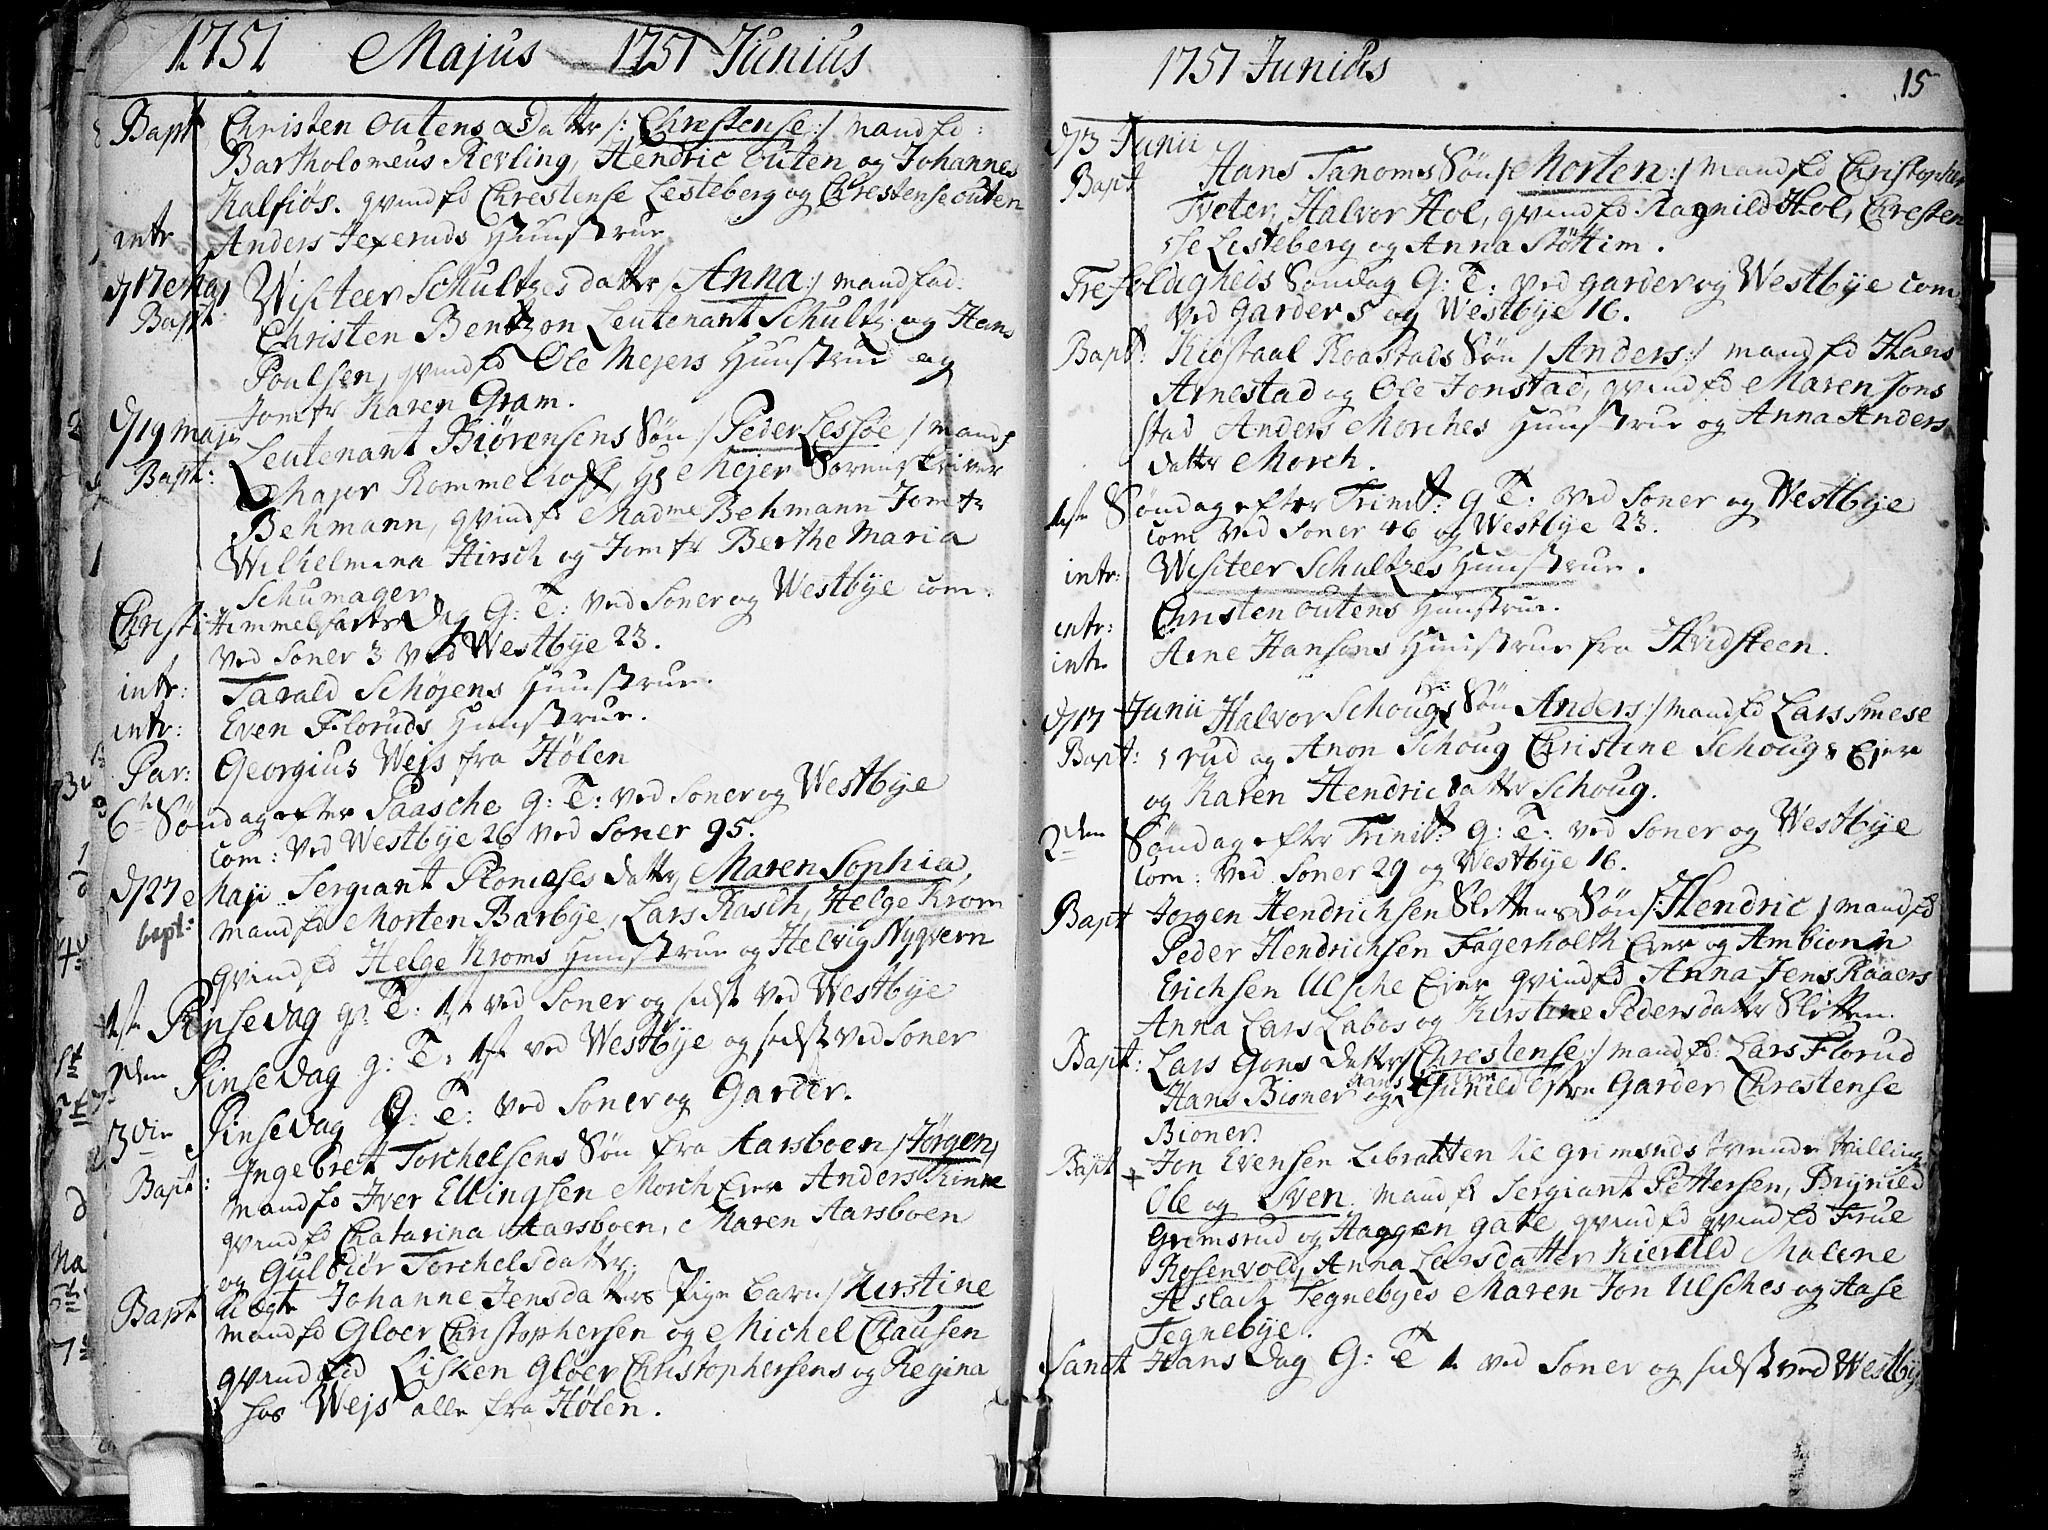 1751 Majus 1751 Junius
Bapt Christen Outens Datter /: Chrestense :/ mandfd:
Bartholomeus Revling, Hendric Outen og Johannes
Kalsiøs. qvindfd Chrestense Lesteberg og Chrestense Outen
intr Anders Hunstrue
d/17 Maj Wisiteer Schultzes datter / Anna :/ mandfad:
Bapt: Christen Bentzon Leutenant Schultz og Hans
Poulsen, qvindfd Ole Mejers Hunstrue og
Jomfr Karen Gram.
d/19 Maji Leutenant Biørensens Søn / Peder Lessøe / mandf
Bapt: Major Rommelhoff, Hr Mejer Sorenskriver
Behmann, qvindfd Madme Behmann Jomfr
Wilhelmina Hirsch og Jomfr Berthe Maria
Schumager
Christi Himmelfarts Dag G: T: ved Soner og Westbye com:
ved Soner 3 ved Westbye 23.
intr: Tarald Schøjens Hunstrue.
intr: Even Floruds Hunstrue.
Par: Georgius Wejs fra Hølen
6te Søndag efter Paasche G: T: ved Soner og Westbye
com: ved Westbye 26 ved Soner 95.
d/27 Maji Sergiant datter, Maren Sophia,
bapt: mandfd Morten Barbye, Lars Rasch, Helge Krom
qvindfd Helge Kroms Hunstrue og Helvig Nygvern
1ste Pinsedag G: T: 1st ved Soner og sidst ved Westbye
2den Pinsedag G: T: 1st ved Westbye og sidst ved Soner
3die Pinsedag G: T: ved Soner og Garder.
Bapt: Ingebret Torchelsens Søn fra Aarsboen / Jørgen /
mandfd Iver Ellingsen Morch Ejer Anders Kinne
qvindfd Chatarina Aarsboen, Maren Aarsboen
og Gulbiør Torchelsdatter.
Bapt Uægte Johanne Jensdatters Pige barn / Kirstine
mandfd Gloer Christophersen og Michel Clausen
qvindfd Lisken Gløer Christophersens og Regina
hos Wejs alle fra Hølen.
1751 Junius
15
d/3 Junii
Bapt Hans Tanoms Søn / Morten :/ mandfd Christopher
Tveter, Halvor Hol, qvindfd Ragnild Hol, Chresten
se Lesteberg og Anna Støttim.
Trefoldigheds Søndag G: T: ved Garder og Westbye com
ved Garder 5 og Westbye 16.
Bapt: Kiøstaal Roastads Søn / Anders :/ mandfd Hans
Arnestad og Ole Jonstad, qvindfd Maren Jons
stad Anders Morches Hunstrue og Anna Anders
datter Morch.
1ste Søndag efter Trinit: G: T: ved Soner og Westbye
com ved Soner 46 og Westbye 23.
intr: Wisiteer Schultzes Hunstrue.
intr: Christen Outens Hunstrue.
intr Arne Hansens Hunstrue fra Hvidsteen.
d/17 Junii Halvor Schougs Søn Anders :/ mandfd Lars Smese
Bapt: rud og Anon Schoug Christine Schougs Ejer
og Karen Hendricdatter Schoug.
2den Søndag efter Trinit: G: T: ved Soner og Westbye
com: ved Soner 29 og Westbye 16.
Bapt Jorgen Hendrichsen Slittens Søn /: Hendric / mandfd
Peder Hendrichsen Fagerholth Ejer og Ambiorn
Erichsen Ulsche Ejer qvindfd Anna Jens Raaers
Anna Lars Labos og Kirstine Pedersdatter Slitten.
Bapt: Lars Gons datter / Chrestense :/ mandfd: Lars Florud
Hans Bioner og Gunild Østre Garder Chrestense
Bioner.
Bapt + Jon Evensen Libratten lie Grimsruds tvende tvilling
Ole og Sven. mandfd Sergiant Pettersen, Brynild
Grimsrud og Haagen gate qvindfd qvindfd Frue
Rosenvold, Anna Larsdatter Kierulld Malene
Aslach Tegnebyes Maren Jon Ulsches og Aase
Tegnebye.
Sanct Hans Dag G: T 1 ved Soner og sidst ved Westby